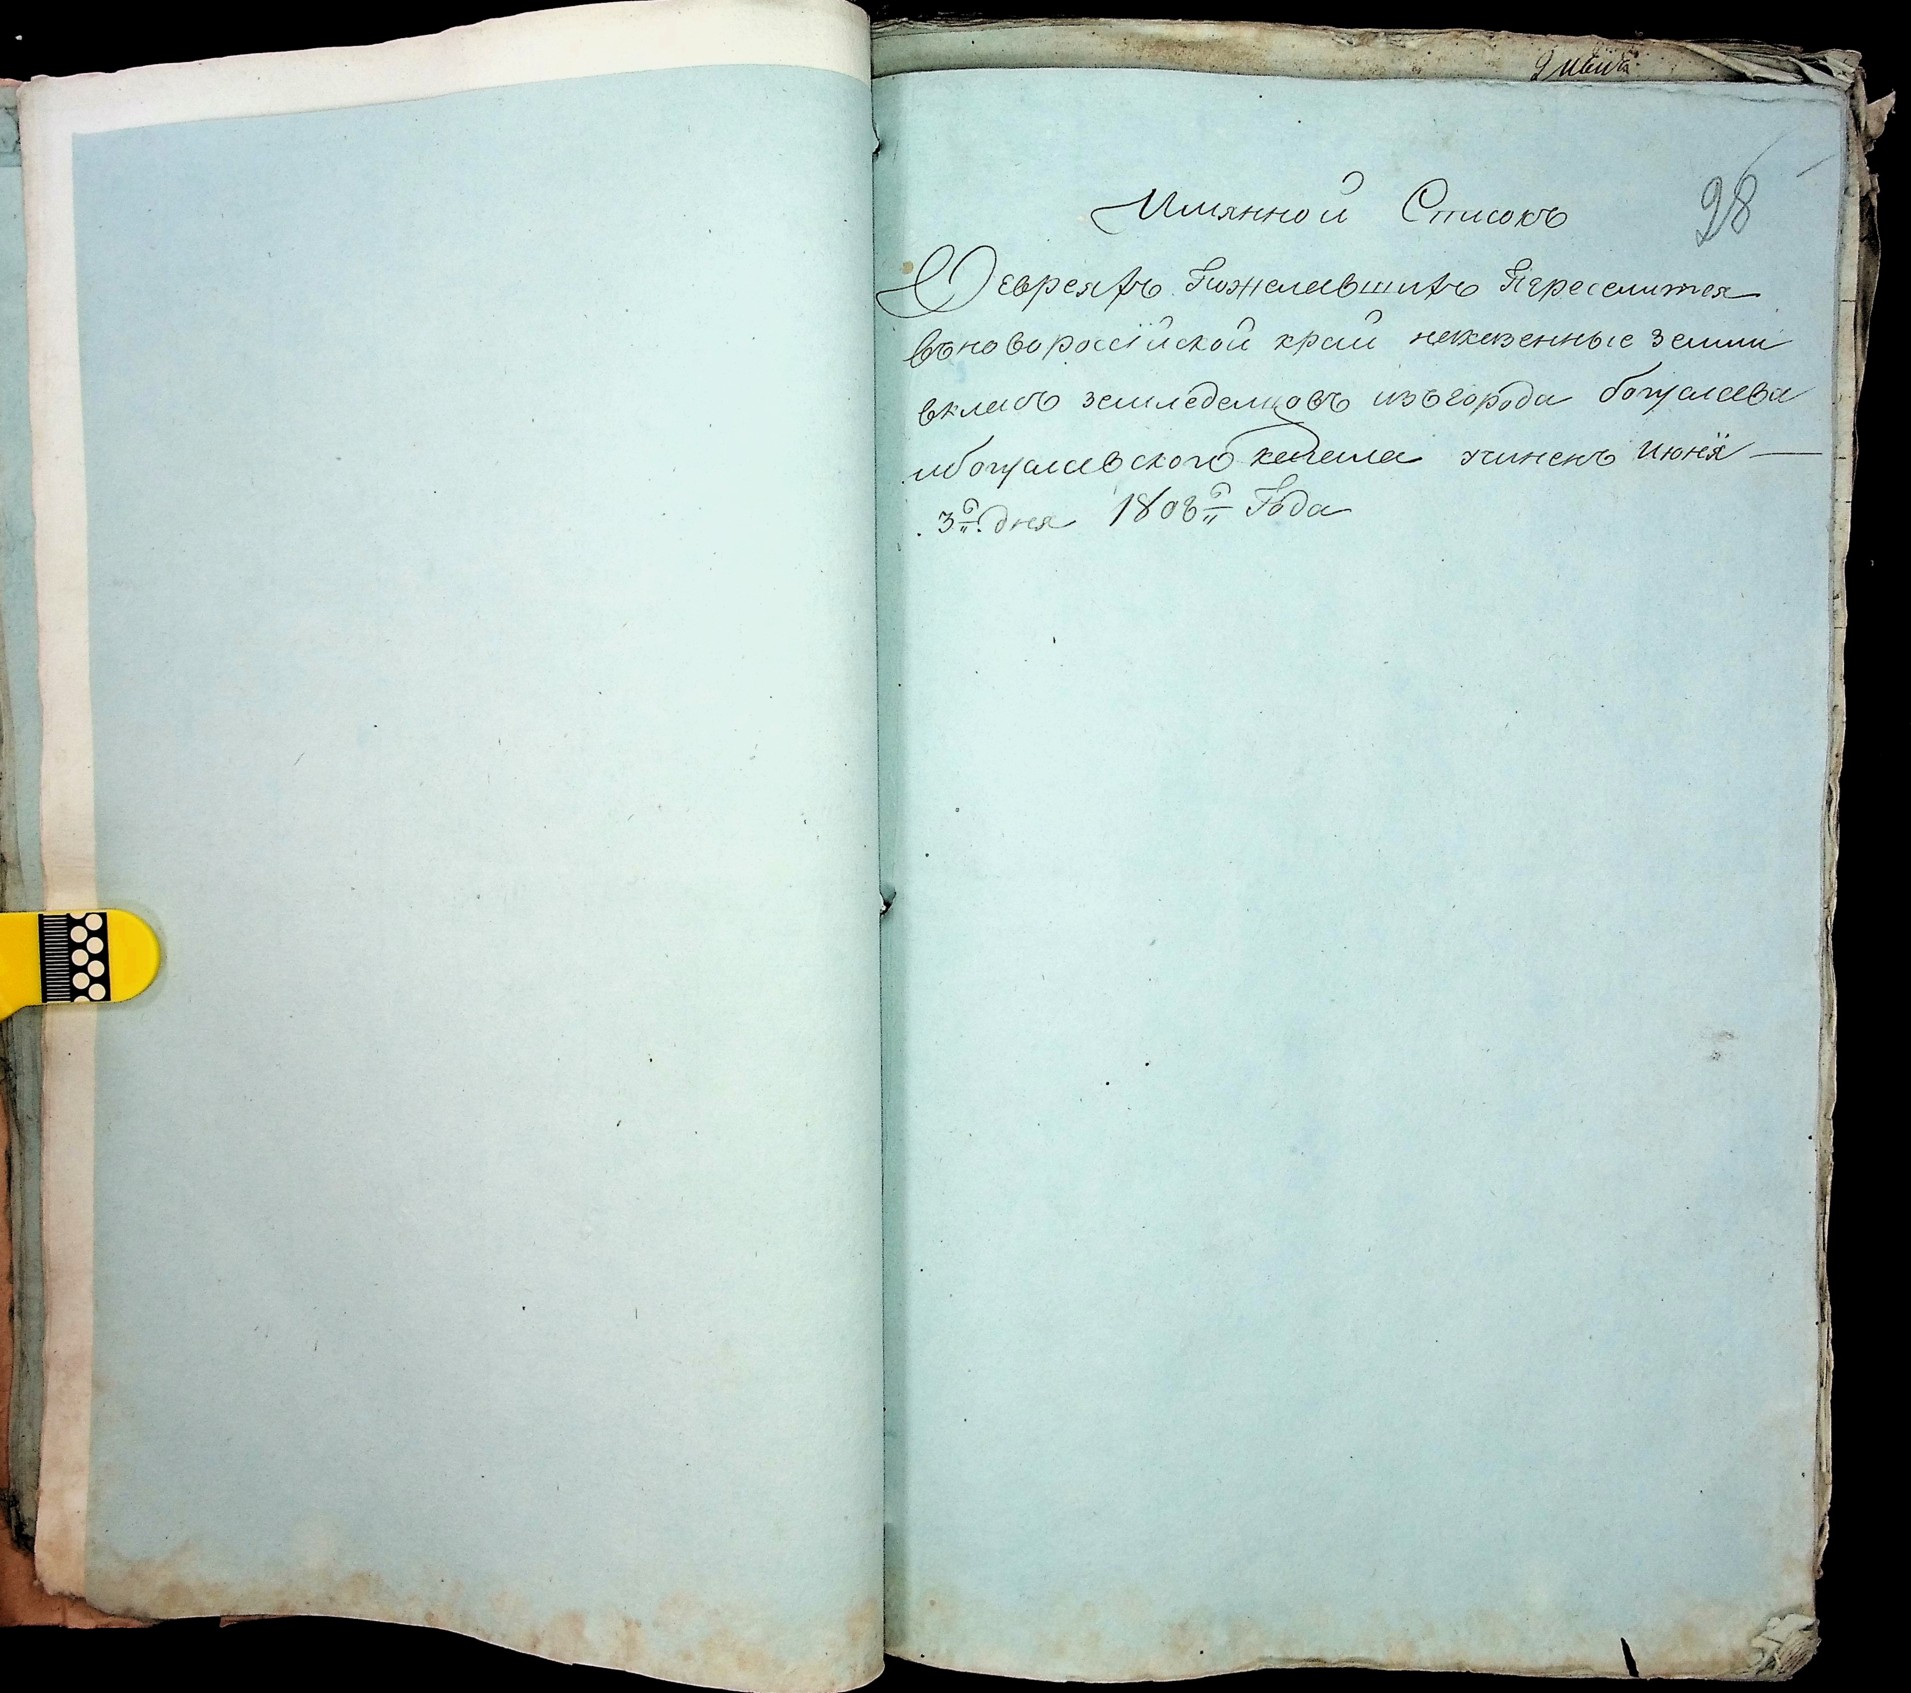 28
Имянной Списокъ
О евреяхъ Пожелавшихъ Переселится
въ новороссiйской край на казенные земли
в класъ земледелцовъ изъ города богуслава
и богуславского кагала учиненъ июня
3го дня 1808го Года